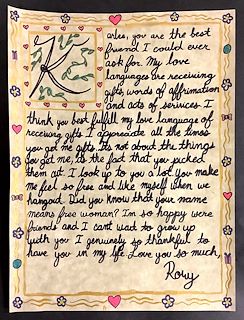 Kalee, you are the best
friend I could ever
ask for. My love
languages are receiving
gifts, words of affirmation
and acts of serivces. I
think you best fulfill my love language of
receiving gifts. I appreciate all the times
you got me gifts. Its not about the things
you got me, its the fact that you picked
them out. I look up to you a lot. You make
me feel so free and like myself when we
hangout. Did you know that your name
means free woman? I'm so happy we're
friends and I cant wait to grow up
with you. I genuinely so thankful to
have you in my life. Love you so much,
Rory